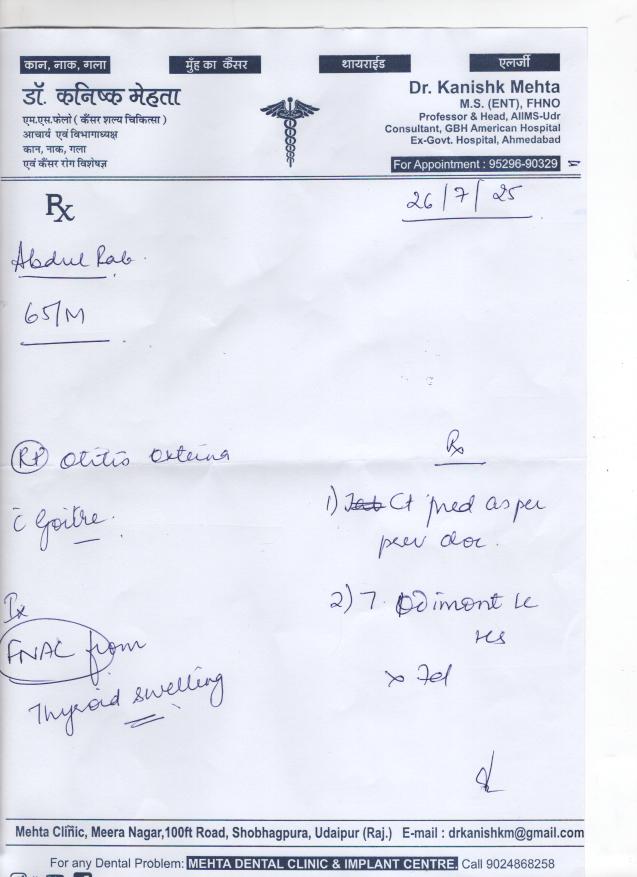 कान, नाक, गला
मुँह का कैंसर
थायराईड
एलर्जी
डॉ. कनिष्क मेहता
एम.एस.फेलो ( कैंसर शल्य चिकित्सा )
आचार्य एवं विभागाध्यक्ष
कान, नाक, गला
एवं कैंसर रोग विशेषज्ञ
Dr. Kanishk Mehta
M.S. (ENT), FHNO
Professor & Head, AIIMS-Udr
Consultant, GBH American Hospital
Ex-Govt. Hospital, Ahmedabad
For Appointment : 95296-90329
Rx
26/7/25
Abdul Rab.
65/M
Rt Otitis externa
c̄ Goitre.
Ix
FNAC from
Thyroid swelling
Rx
1) Ct med as per
prev doc.
2) T. Odimont LC
x 7d
Mehta Clinic, Meera Nagar,100ft Road, Shobhagpura, Udaipur (Raj.) E-mail : drkanishkm@gmail.com
For any Dental Problem: MEHTA DENTAL CLINIC & IMPLANT CENTRE. Call 9024868258